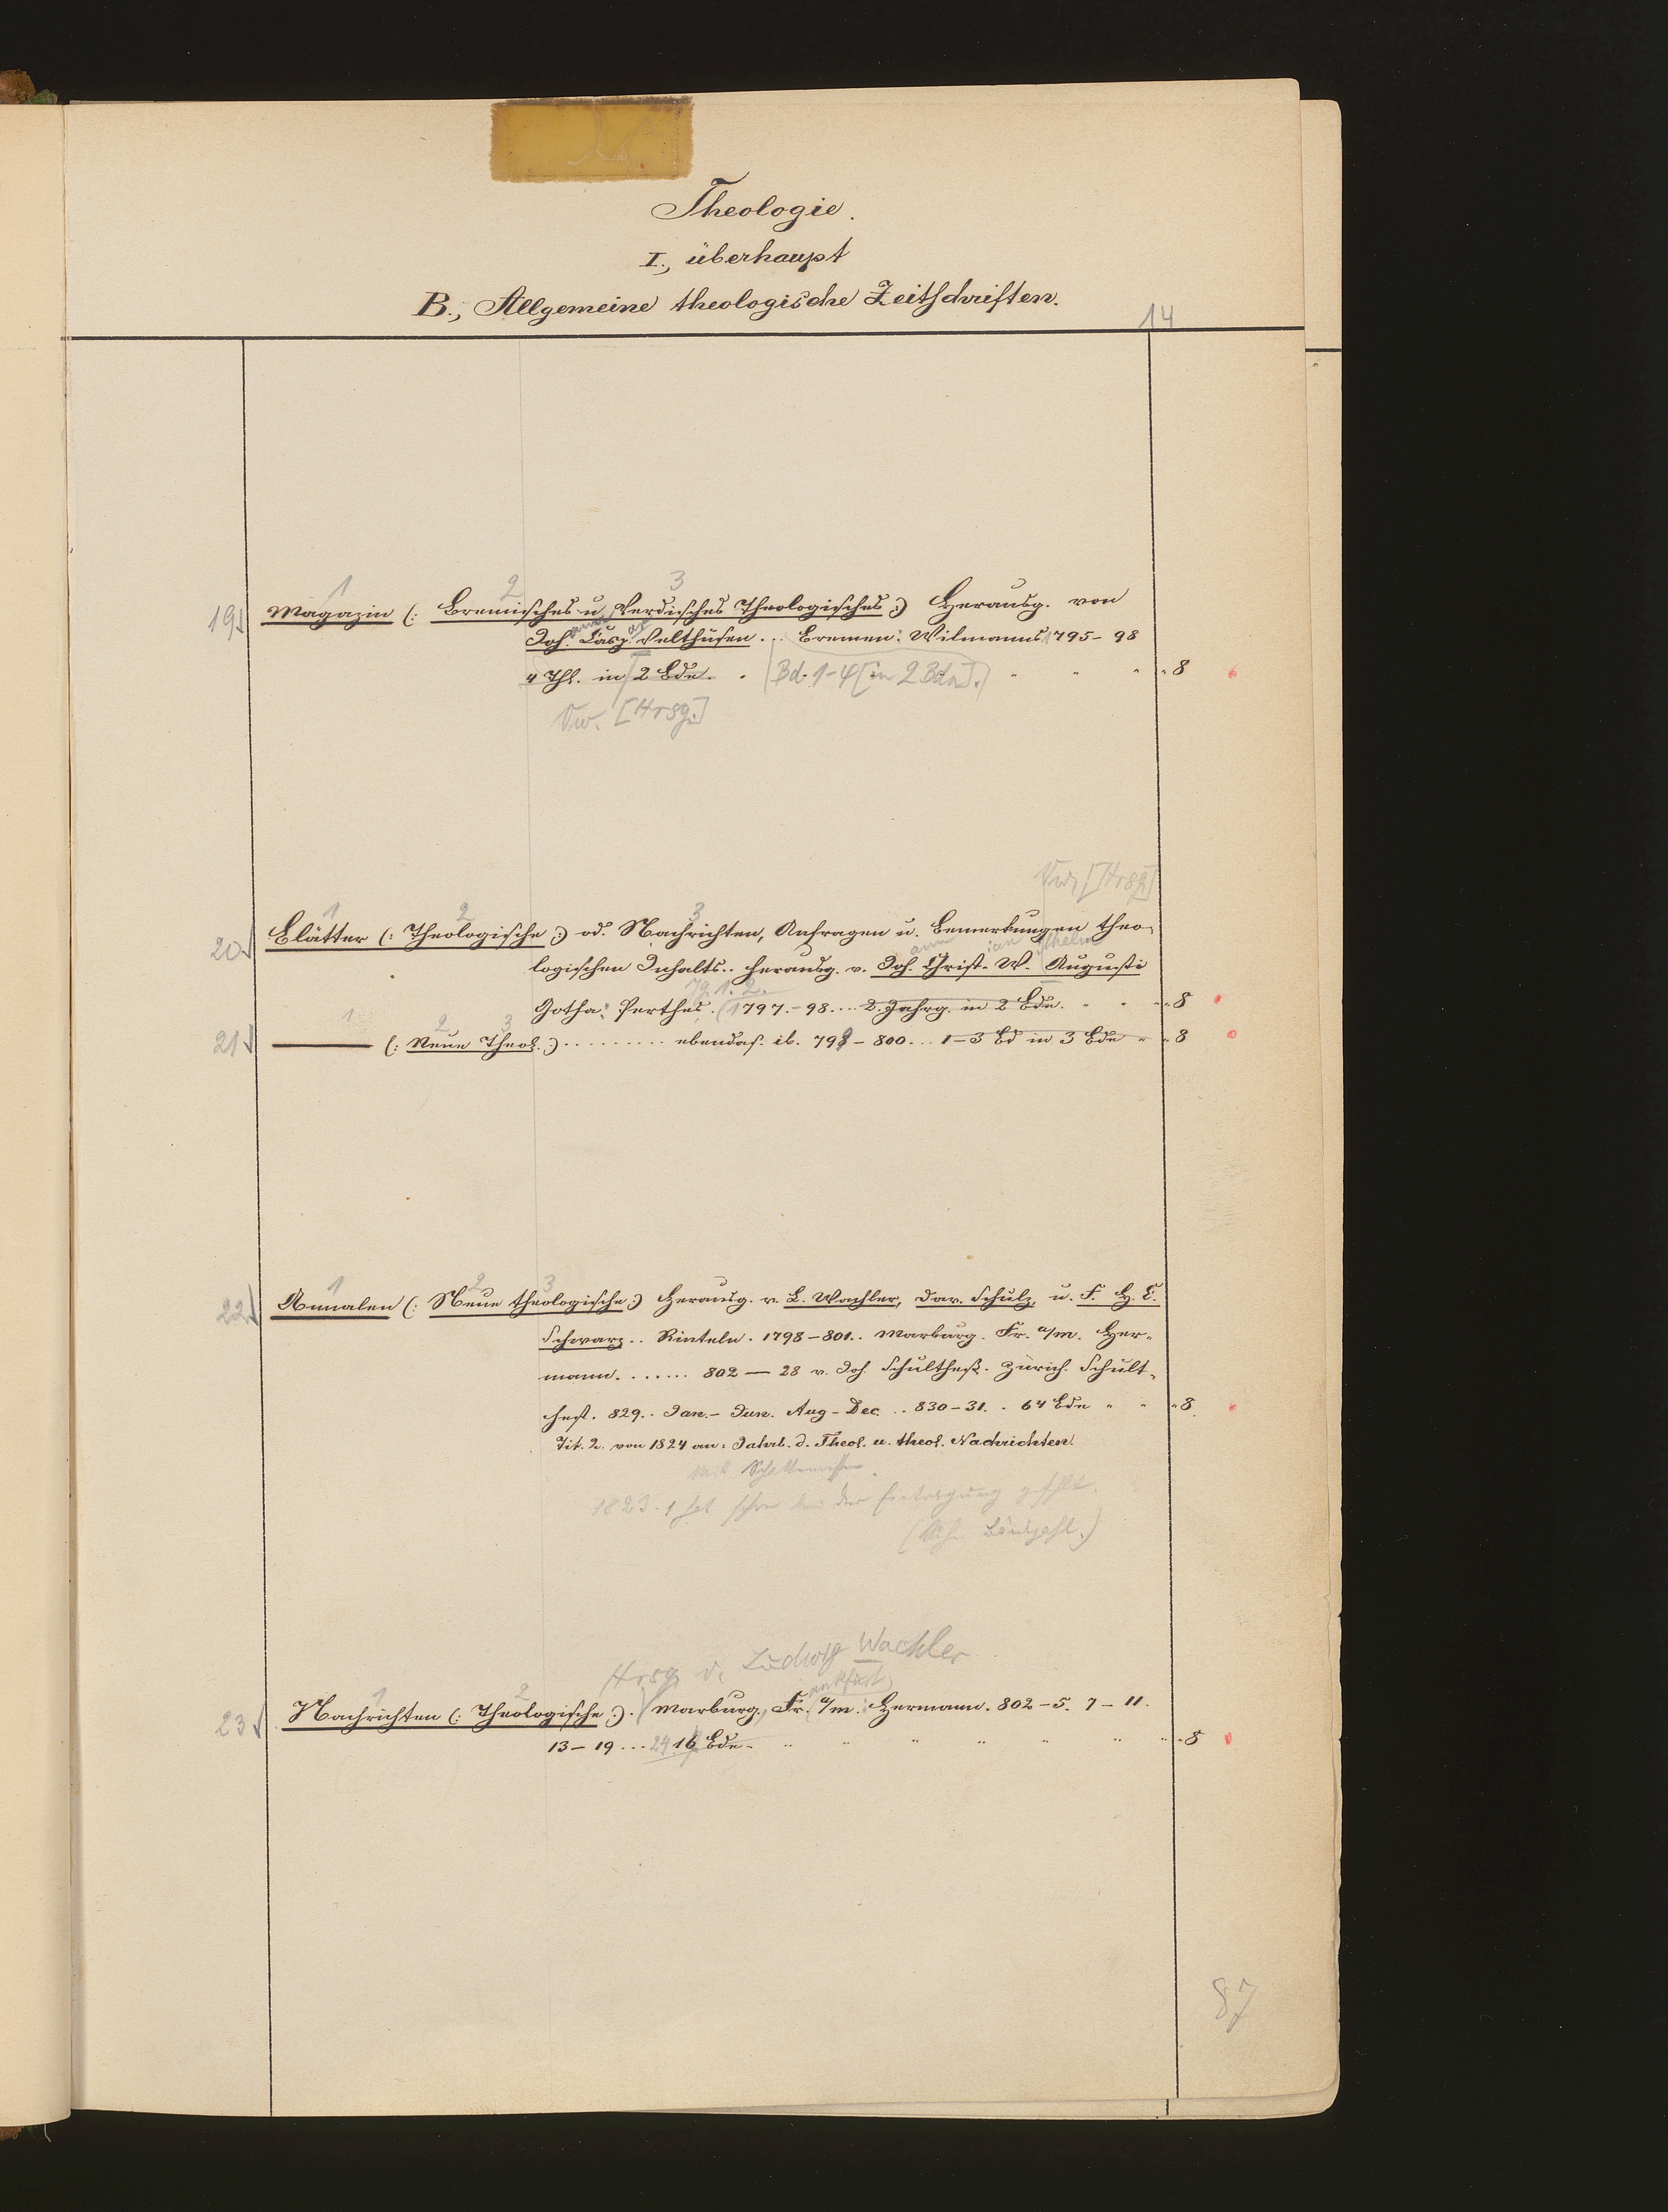 Theologie.
I., überhaupt
B., Allgemeine theologische Zeitschriften.
14
1 2 3
19 Magazin (: Bremisches u. Verdisches Theologisches :) Herausg. von
Joh. Casp. Velthusen ... Bremen: Wilmanns 1795-98
4 Thl. in 2 Bde. (Bd. 1-4 [in 2 Bdn].) " " " " 8
Vw. [Hrsg.]
Vw. [Hrsg.]
1 2 3
20 Blätter (: Theologische :) od. Nachrichten, Anfragen u. Bemerkungen theo-
ann ian ilhelm
logischen Inhalts.. herausg. v. Joh. Christ. W. Augusti
Jg. 1. 2.
Gotha: Perthes. (1797.-98.... 2. Jahrg. in 2 Bde. " " " " 8
1 2 3
21 ——— (: Neue Theol. :) ......... ebendas. ib. 798-800... 1-3 Bd in 3 Bde " " 8
1 2 3
22 Annalen (: Neue theologische :) Herausg. v. L. Wachler, Dav. Schulz, u. F. H. C.
Schwarz.. Rinteln. 1798-801.. Marburg. Fr. a/m. Her-
mann. ...... 802 — 28 v. Joh. Schultheß. Zürich. Schult-
heß. 829.. Jan.- Jun. Aug-Dec. .. 830-31. . 64 Bde " " " 8
Tit. 2. von 1824 an: Jahrb. d. Theol. u. theol. Nachrichten.
1823. 1 hat schon bei der Eintragung gefehlt.
Hrsg. v. Ludwig Wachler
1 2 ankfurt
23 Nachrichten (: Theologische :). (Marburg, Fr. a/m.: Hermann. 802-5. 7-11.
13-19 ... 24 16 Bde. " " " " " " " " 8
87